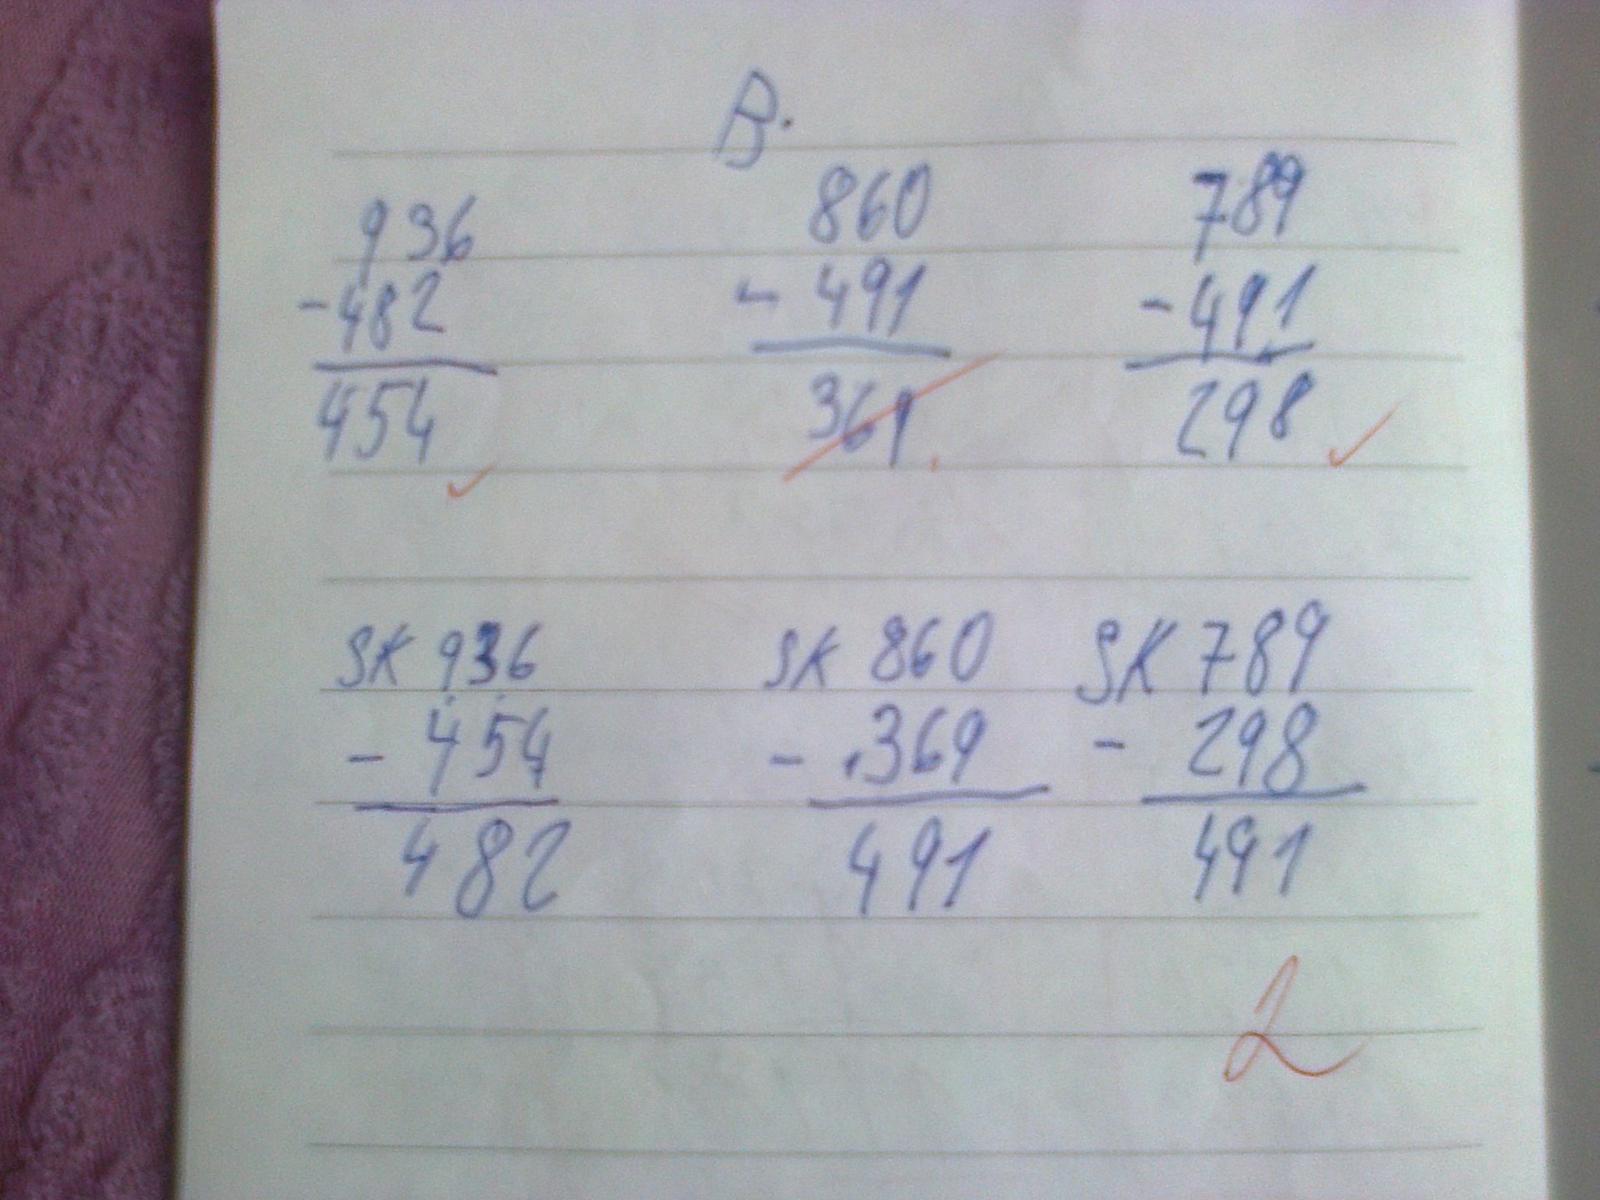 B.
936 860 789
-482 - 491 -491
454 369. 298
SK 936 SK 860 SK 789
- 454 - 369 - 298
482 491 491
2